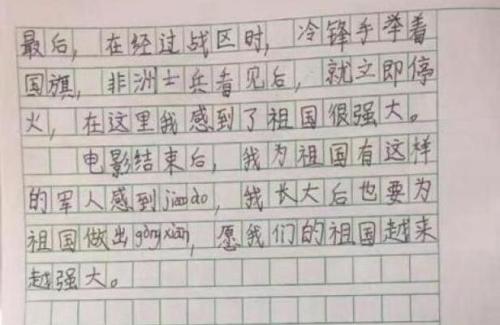 最后，在经过战区时，冷锋手举着
国旗，非洲士兵看见后，就立即停
火，在这里我感到了祖国很强大。
电影结束后，我为祖国有这样
的军人感到jiaodo，我长大后也要为
祖国做出gòngxiàn，愿我们的祖国越来
越强大。